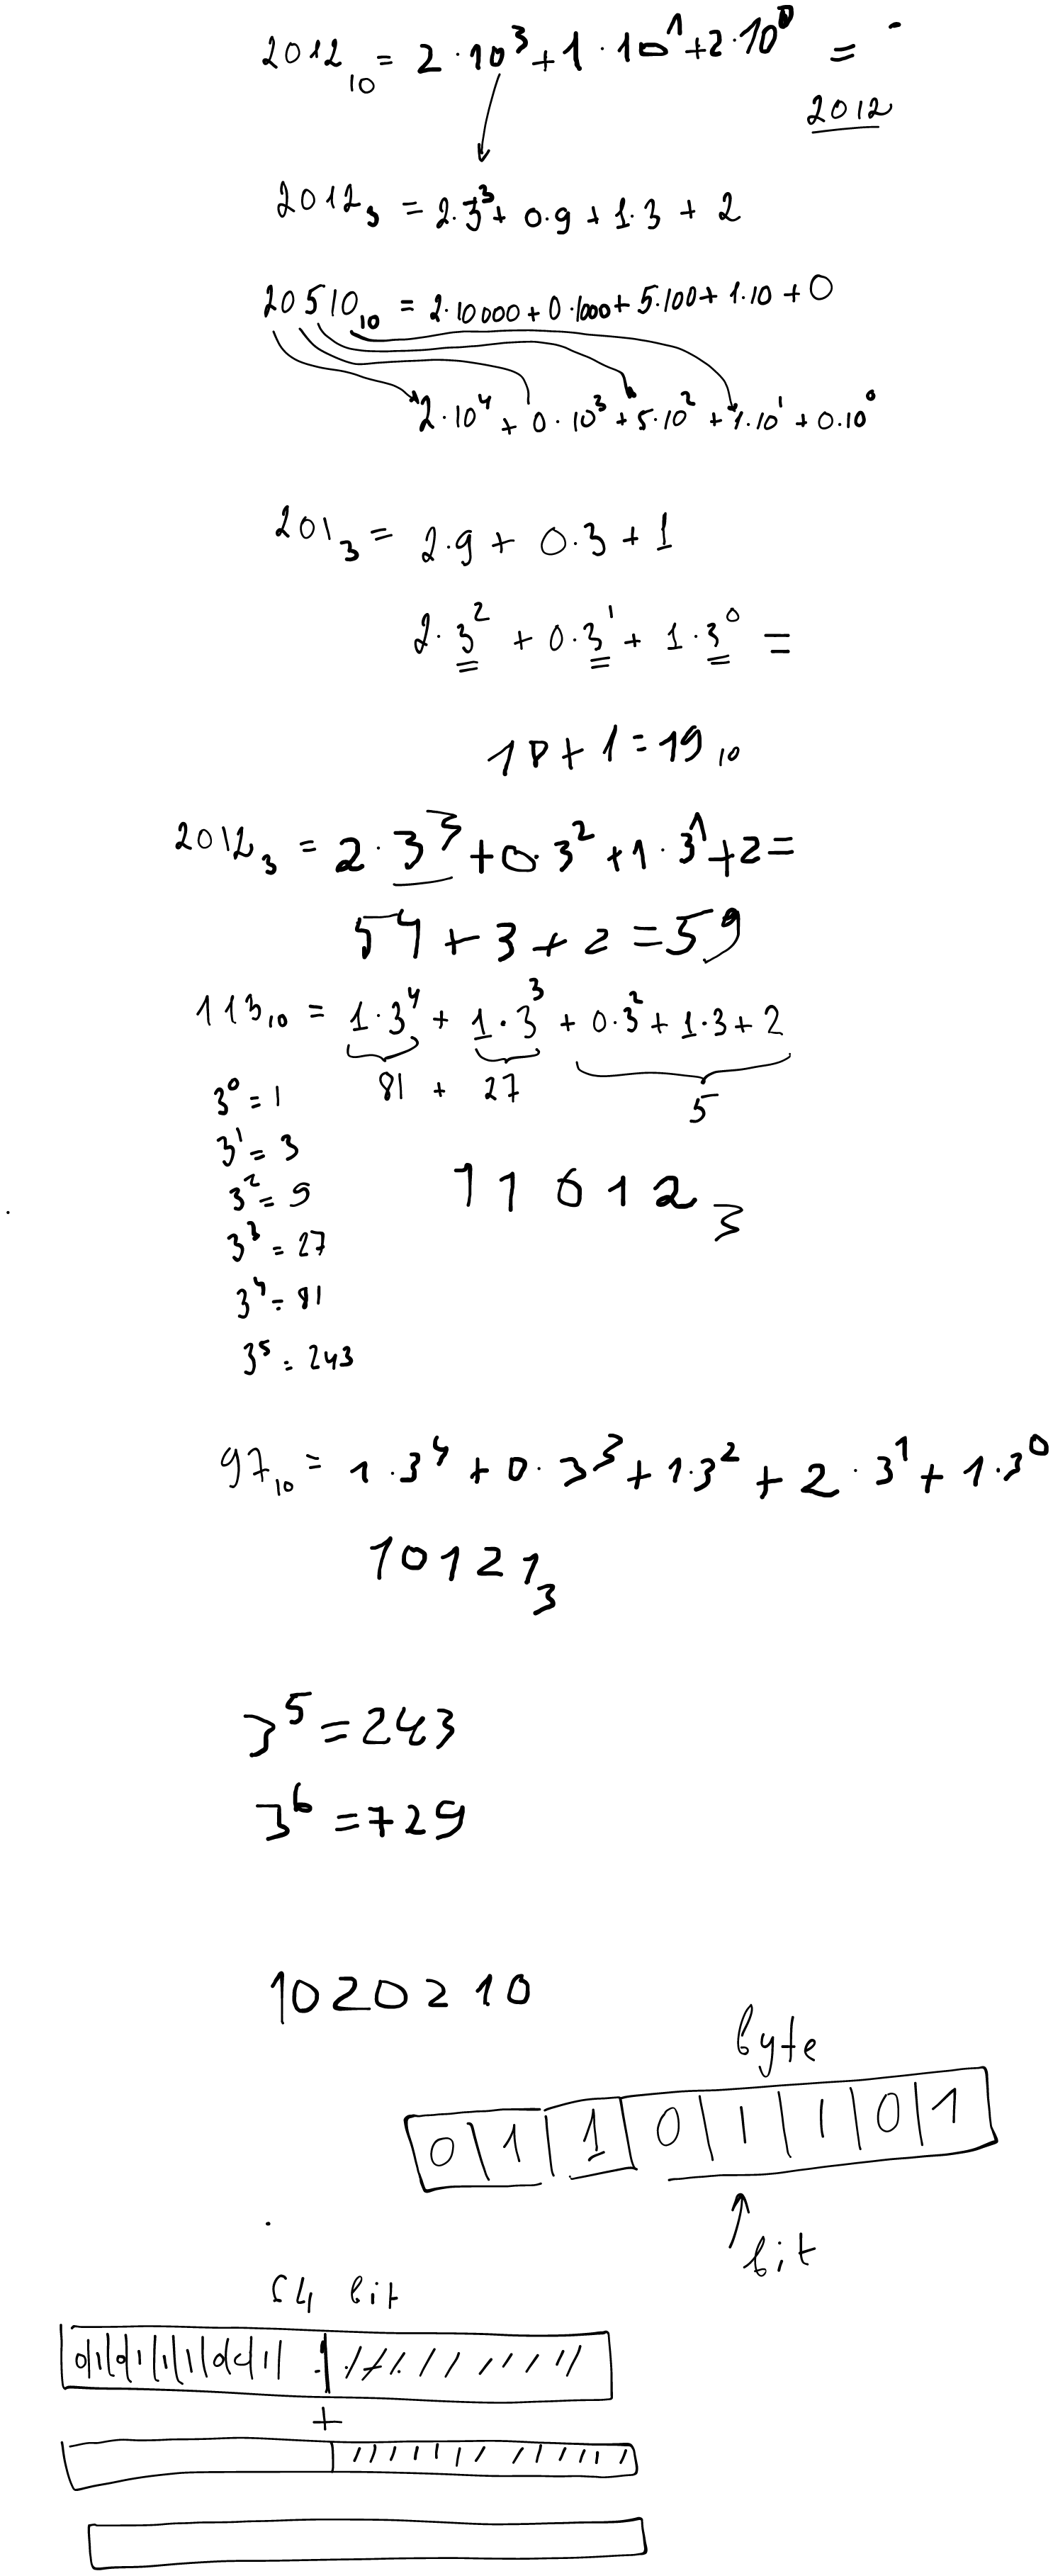 2012₁₀ = 2·10³+1·10¹+2·10⁰ =
2012
2012₃ = 2·3³+ 0·9 + 1·3 + 2
20510₁₀ = 2·10000+0·1000+5·100+1·10+0
2·10⁴ + 0·10³+5·10²+1·10¹+0·10⁰
201₃ = 2·9 + 0·3 + 1
2·3² + 0·3¹ + 1·3⁰ =
18+1=19₁₀
2012₃ = 2·3³+0·3²+1·3¹+2=
54+3+2=59
113₁₀ = 1·3⁴ + 1·3³ + 0·3² + 1·3+2
81 + 27 5
3⁰=1
3¹=3
11012₃
3²=9
3³=27
3⁴=81
3⁵=243
97₁₀ = 1·3⁴+0·3³+1·3²+2·3¹+1·3⁰
10121₃
3⁵=243
3⁶=729
1020210
byte
0|1|1|0|1|1|0|1
bit
64 bit
+